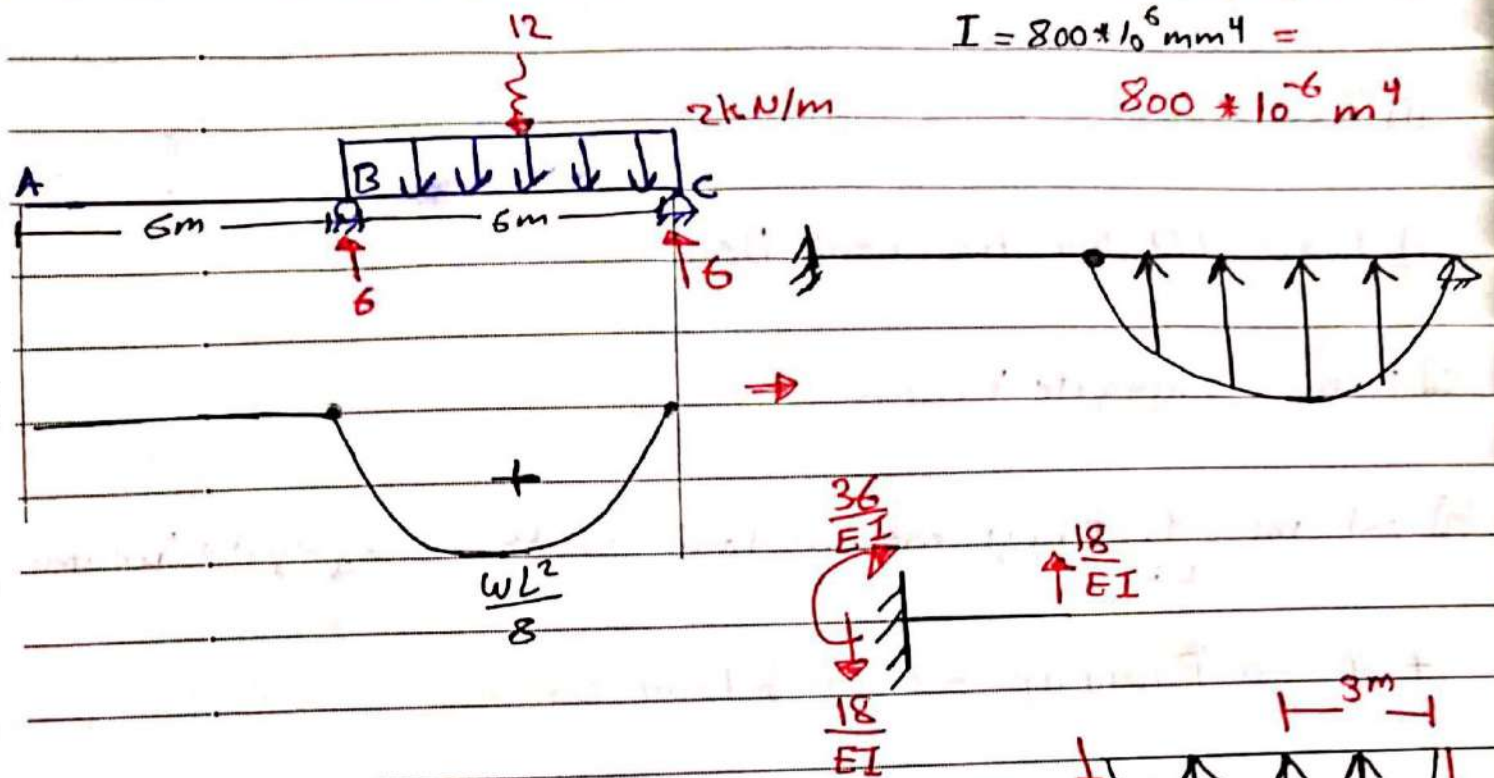 12
I = 800*10^6 mm^4 =
800 * 10^-6 m^4
2kN/m
A
B
C
6m
6m
6
6
+
wL²/8
36/EI
18/EI
18/EI
3m